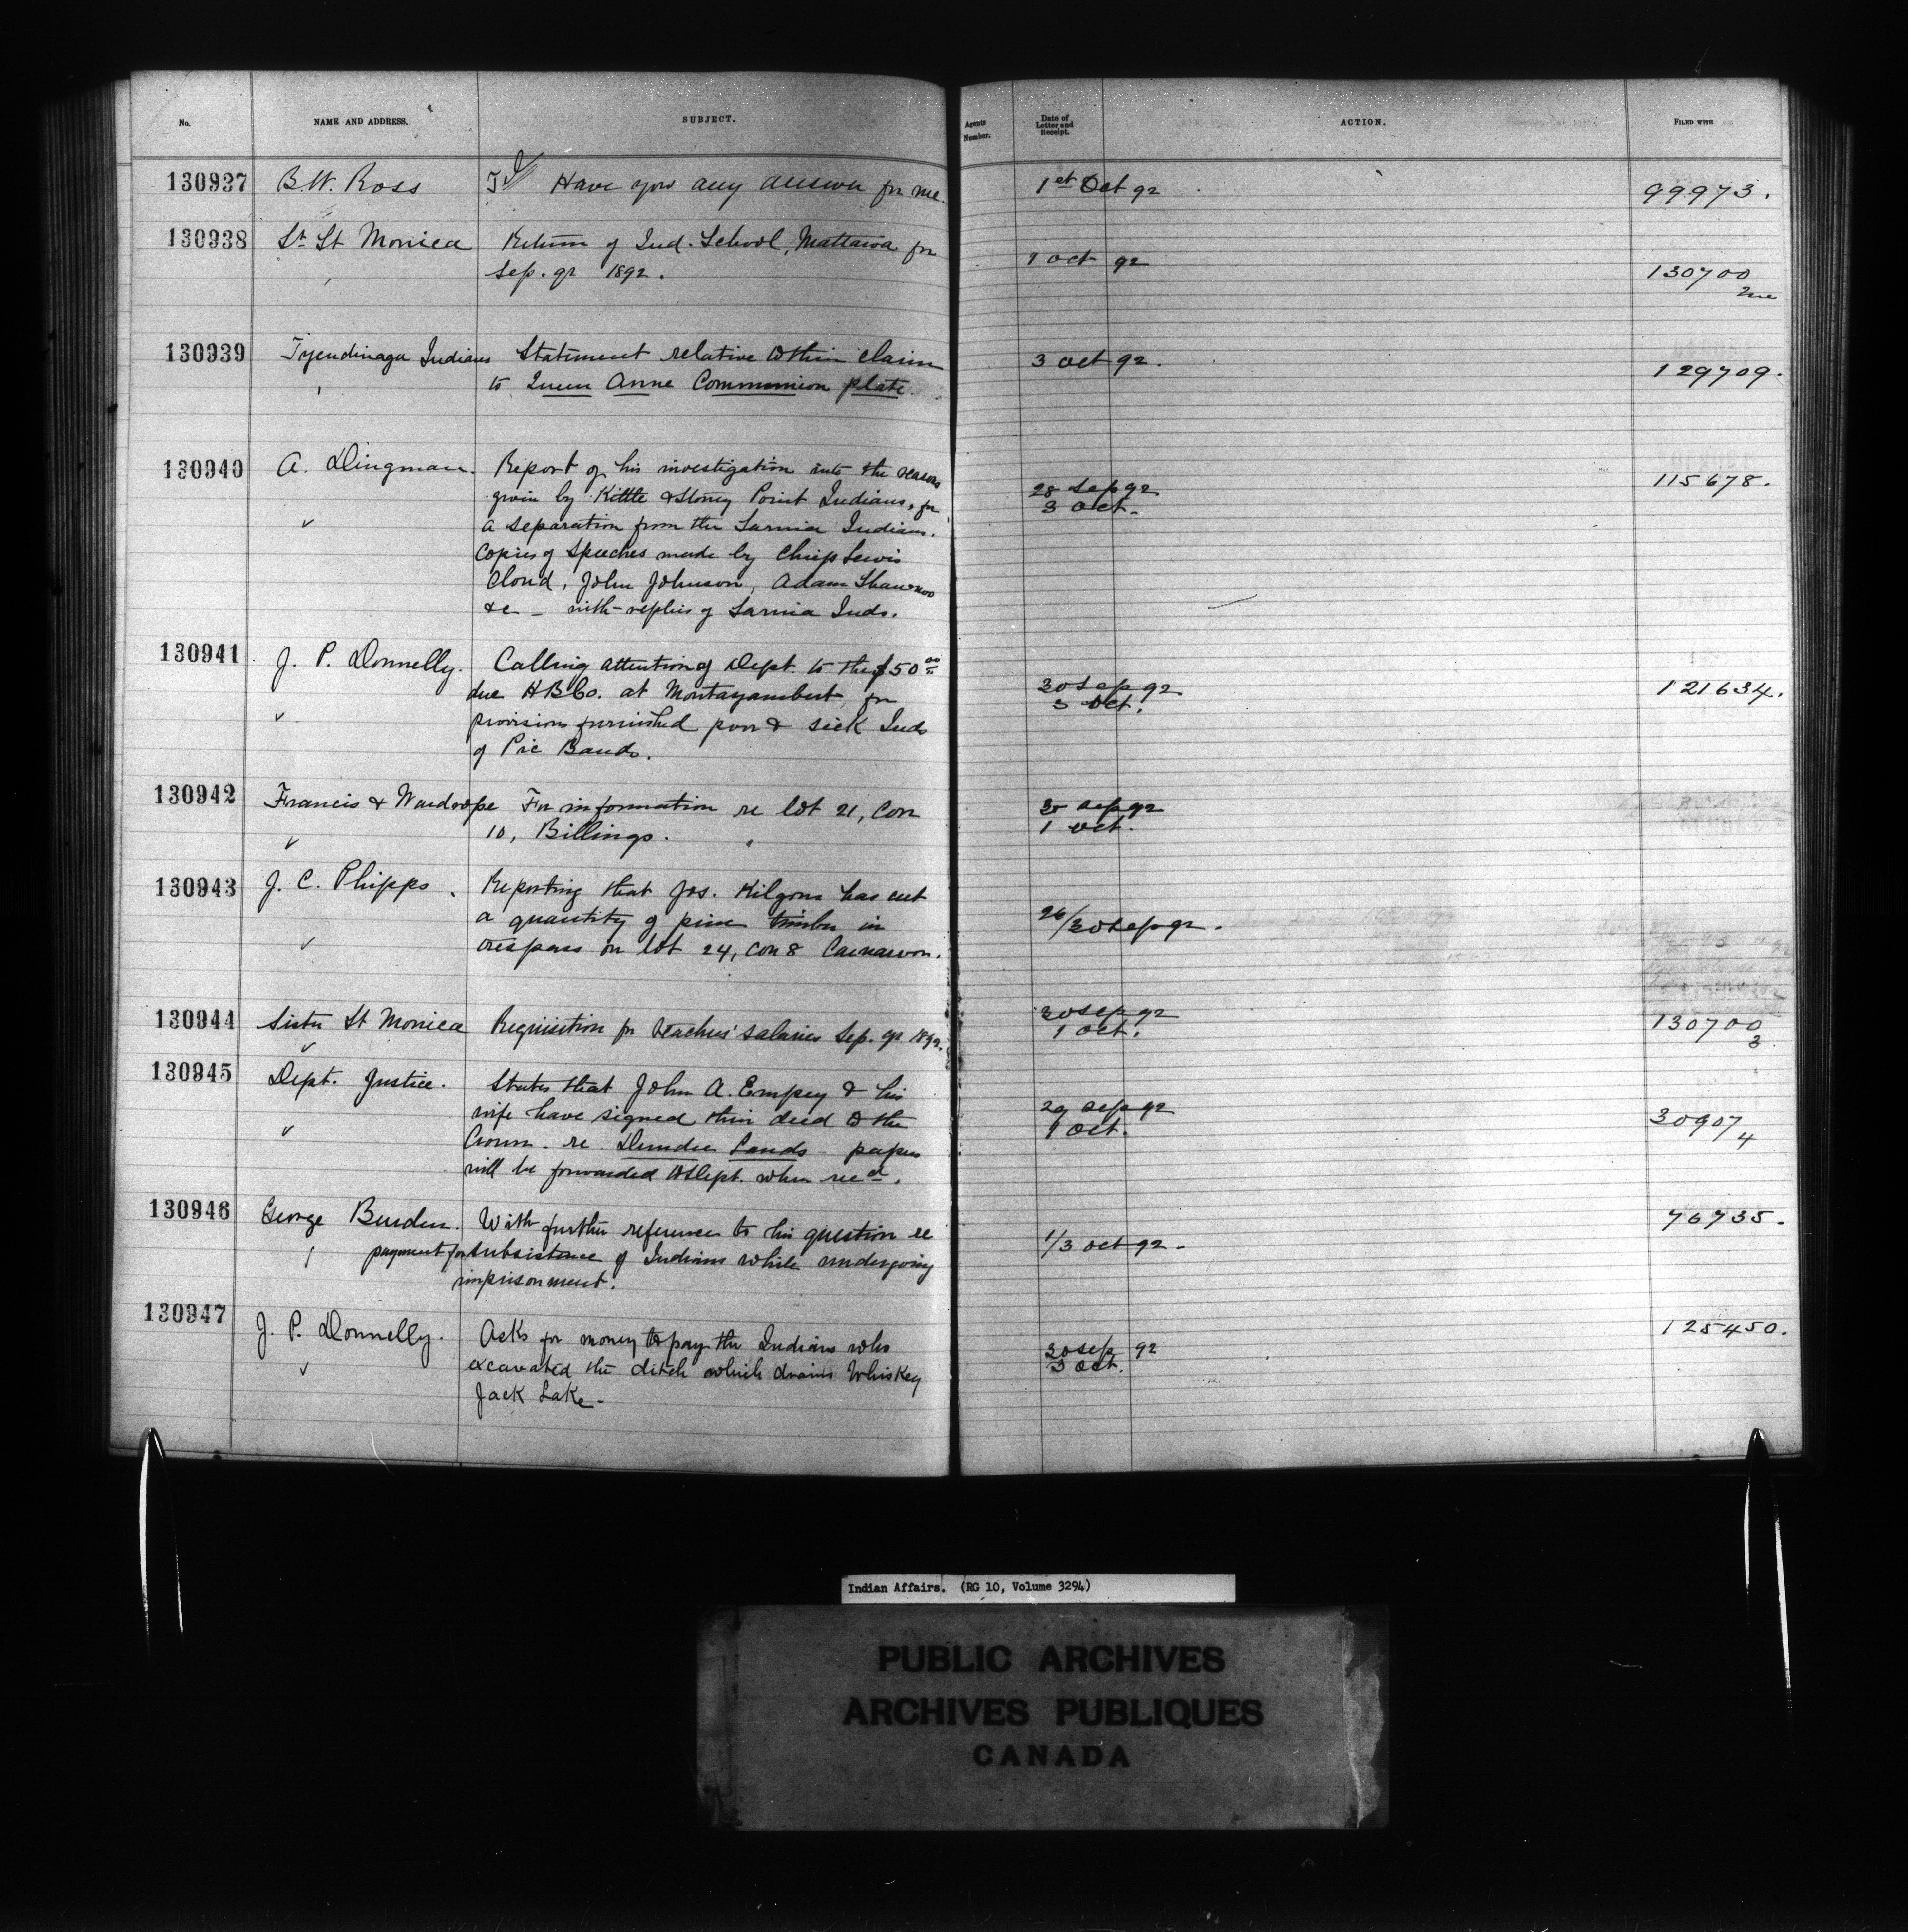 No.
NAME AND ADDRESS.
SUBJECT.
Agents Number.
Date of Letter and Receipt.
ACTION.
FILED WITH
130937 B W. Ross Have you any answer for me. 1st Oct 92 99973.
130938 Sr St Monica Return of Ind. School, Mattawa for 1 Oct 92
Sep. qr 1892. 130700
130939 Tyendinaga Indians Statement relative to their claim 3 Oct 92.
to Queen Anne Communion plate. 129709.
130940 A. Dingman. Report of his investigation into the reasons 115678.
given by Kettle & Stoney Point Indians, for 28 Sep 92
a separation from the Sarnia Indians. 3 Oct.
Copies of Speeches made by Chief Lewis
Cloud, John Johnson, Adam Shawnoo
&c — with replies of Sarnia Inds.
130941 J. P. Donnelly. Calling attention of Dept. to the $50 00
due H B Co. at Montazambert, for 30 Sep 92 121634.
provisions furnished poor & sick Inds 3 Oct.
of Pic Bands.
130942 Francis & Wardrope For information re lot 21, Con 30 Sep 92
10, Billings. 1 Oct.
130943 J. C. Phipps. Reporting that Jos. Kilgour has cut
a quantity of pine timber in 26/30 Sep 92.
trespass on lot 24, Con 8 Carnarvon.
130944 Sister St Monica Requisition for teachers' salaries Sep. qr 1892. 30 Sep 92 130700
1 Oct. 3
130945 Dept. Justice. States that John A. Empey & his
wife have signed their deed to the 29 Sep 92 30907/4
Crown re Dundee Lands papers 1 Oct.
will be forwarded to Dept. when recd.
130946 George Burden. With further reference to his question re 76735.
payment for subsistence of Indians while undergoing 1/3 Oct 92.
imprisonment.
130947 J. P. Donnelly. Asks for money to pay the Indians who 125450.
excavated the ditch which drains Whiskey 30 Sep 92
Jack Lake. 3 Oct.
Indian Affairs. (RG 10, Volume 3294)
PUBLIC ARCHIVES
ARCHIVES PUBLIQUES
CANADA